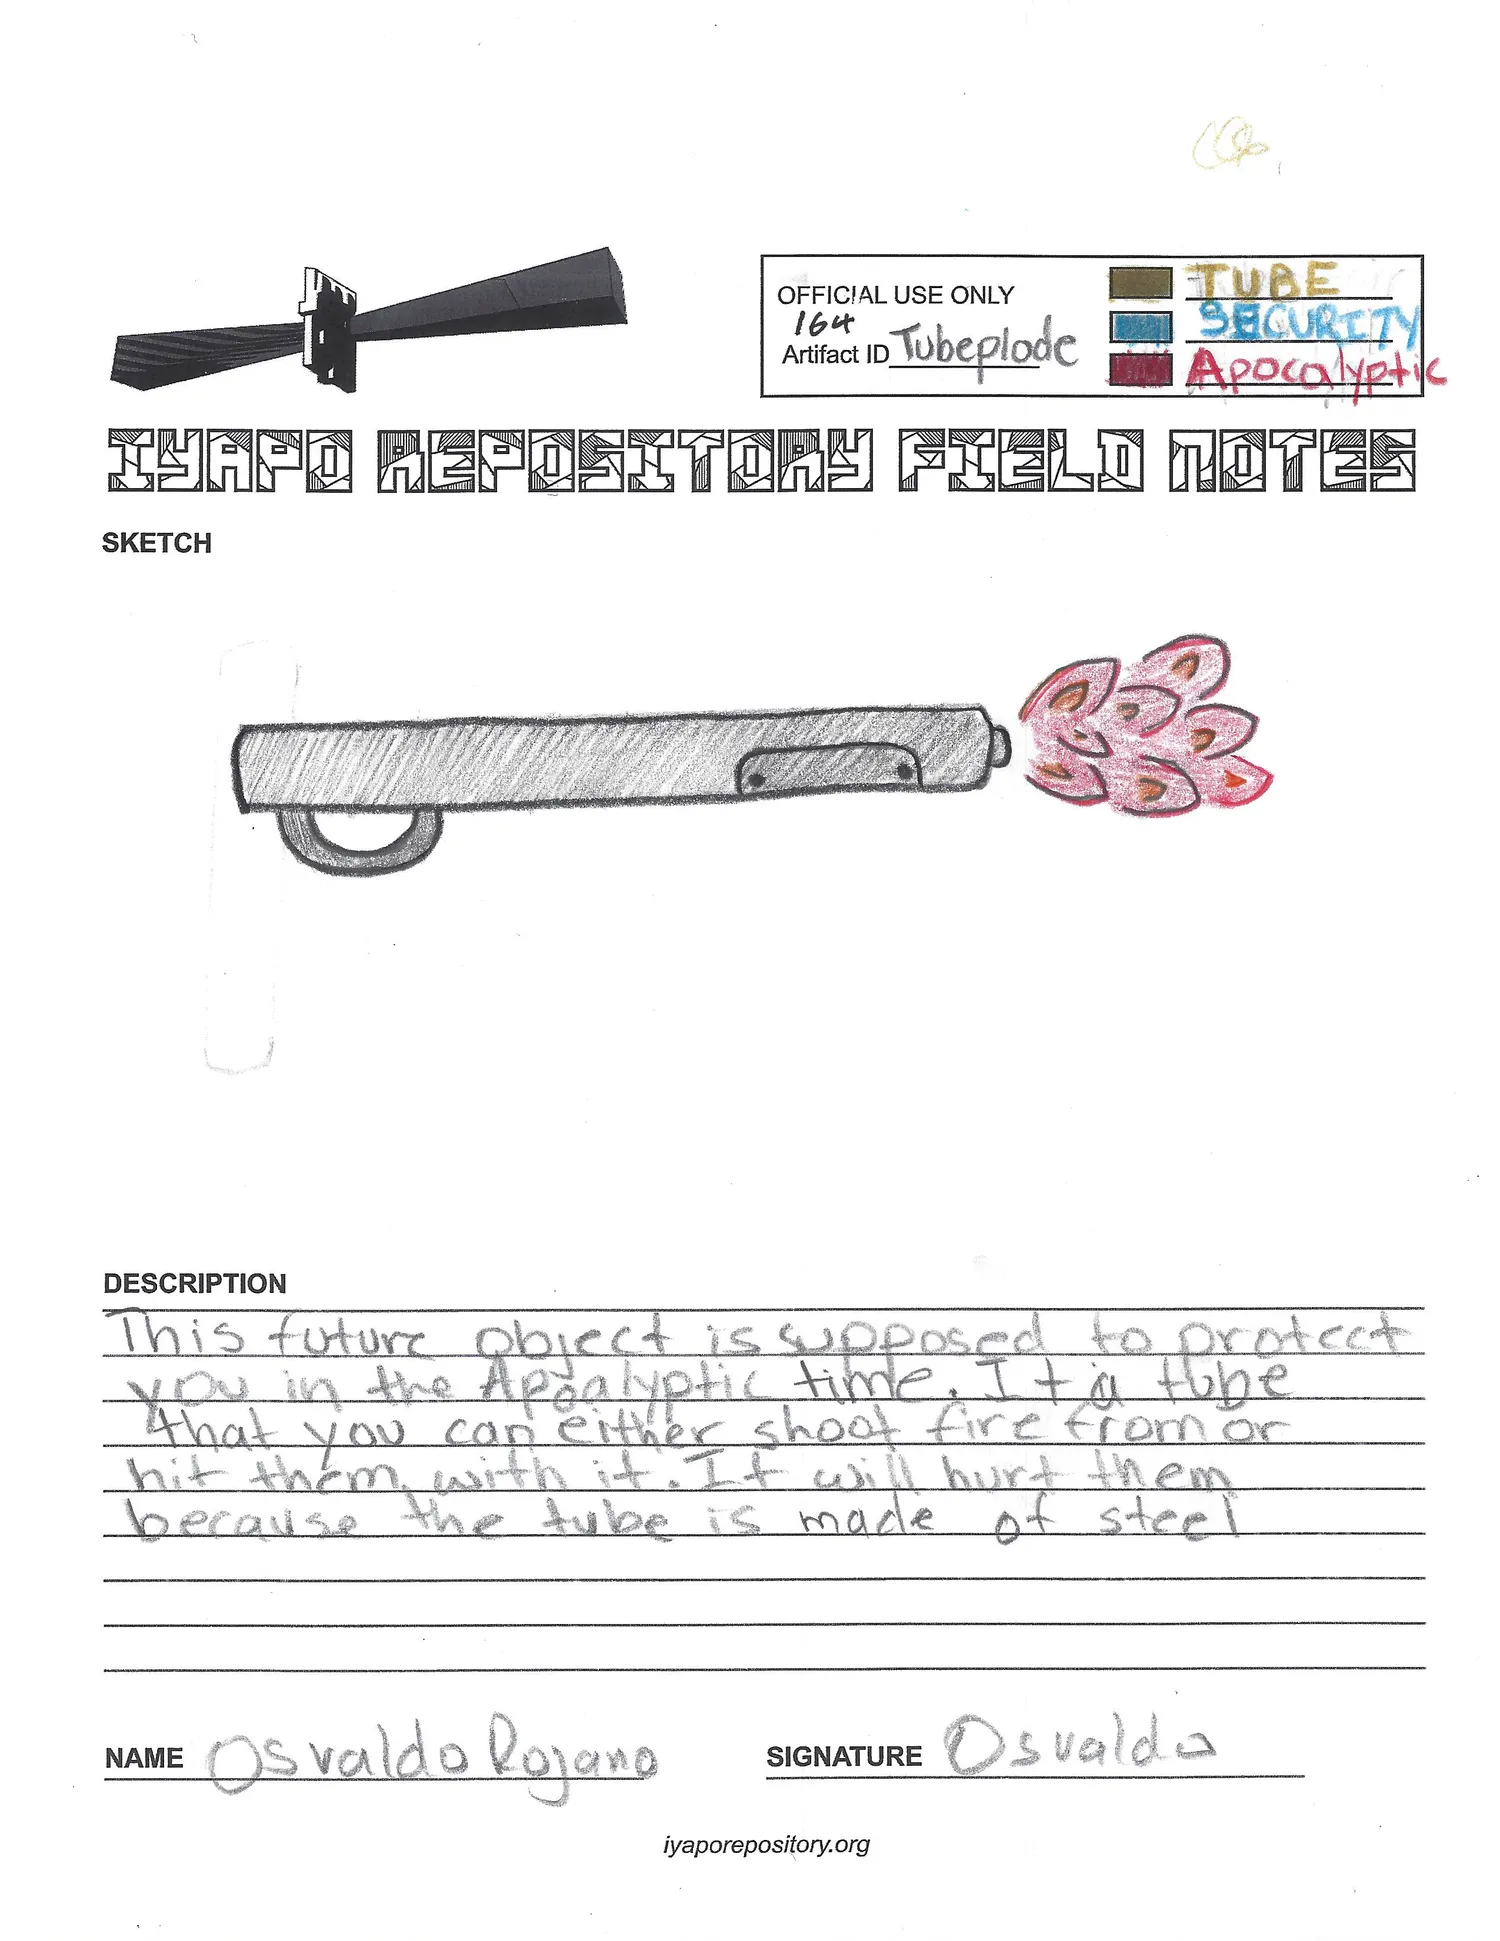 OFFICIAL USE ONLY
164
Artifact ID Tubeplode
TUBE
SECURITY
Apocalyptic
IYAPO REPOSITORY FIELD NOTES
SKETCH
DESCRIPTION
This future object is supposed to protect
you in the Apocalyptic time. It a tube
that you can either shoot fire from or
hit them with it. It will hurt them
because the tube is made of steel
NAME Osvaldo Rojano
SIGNATURE Osvaldo
iyaporepository.org